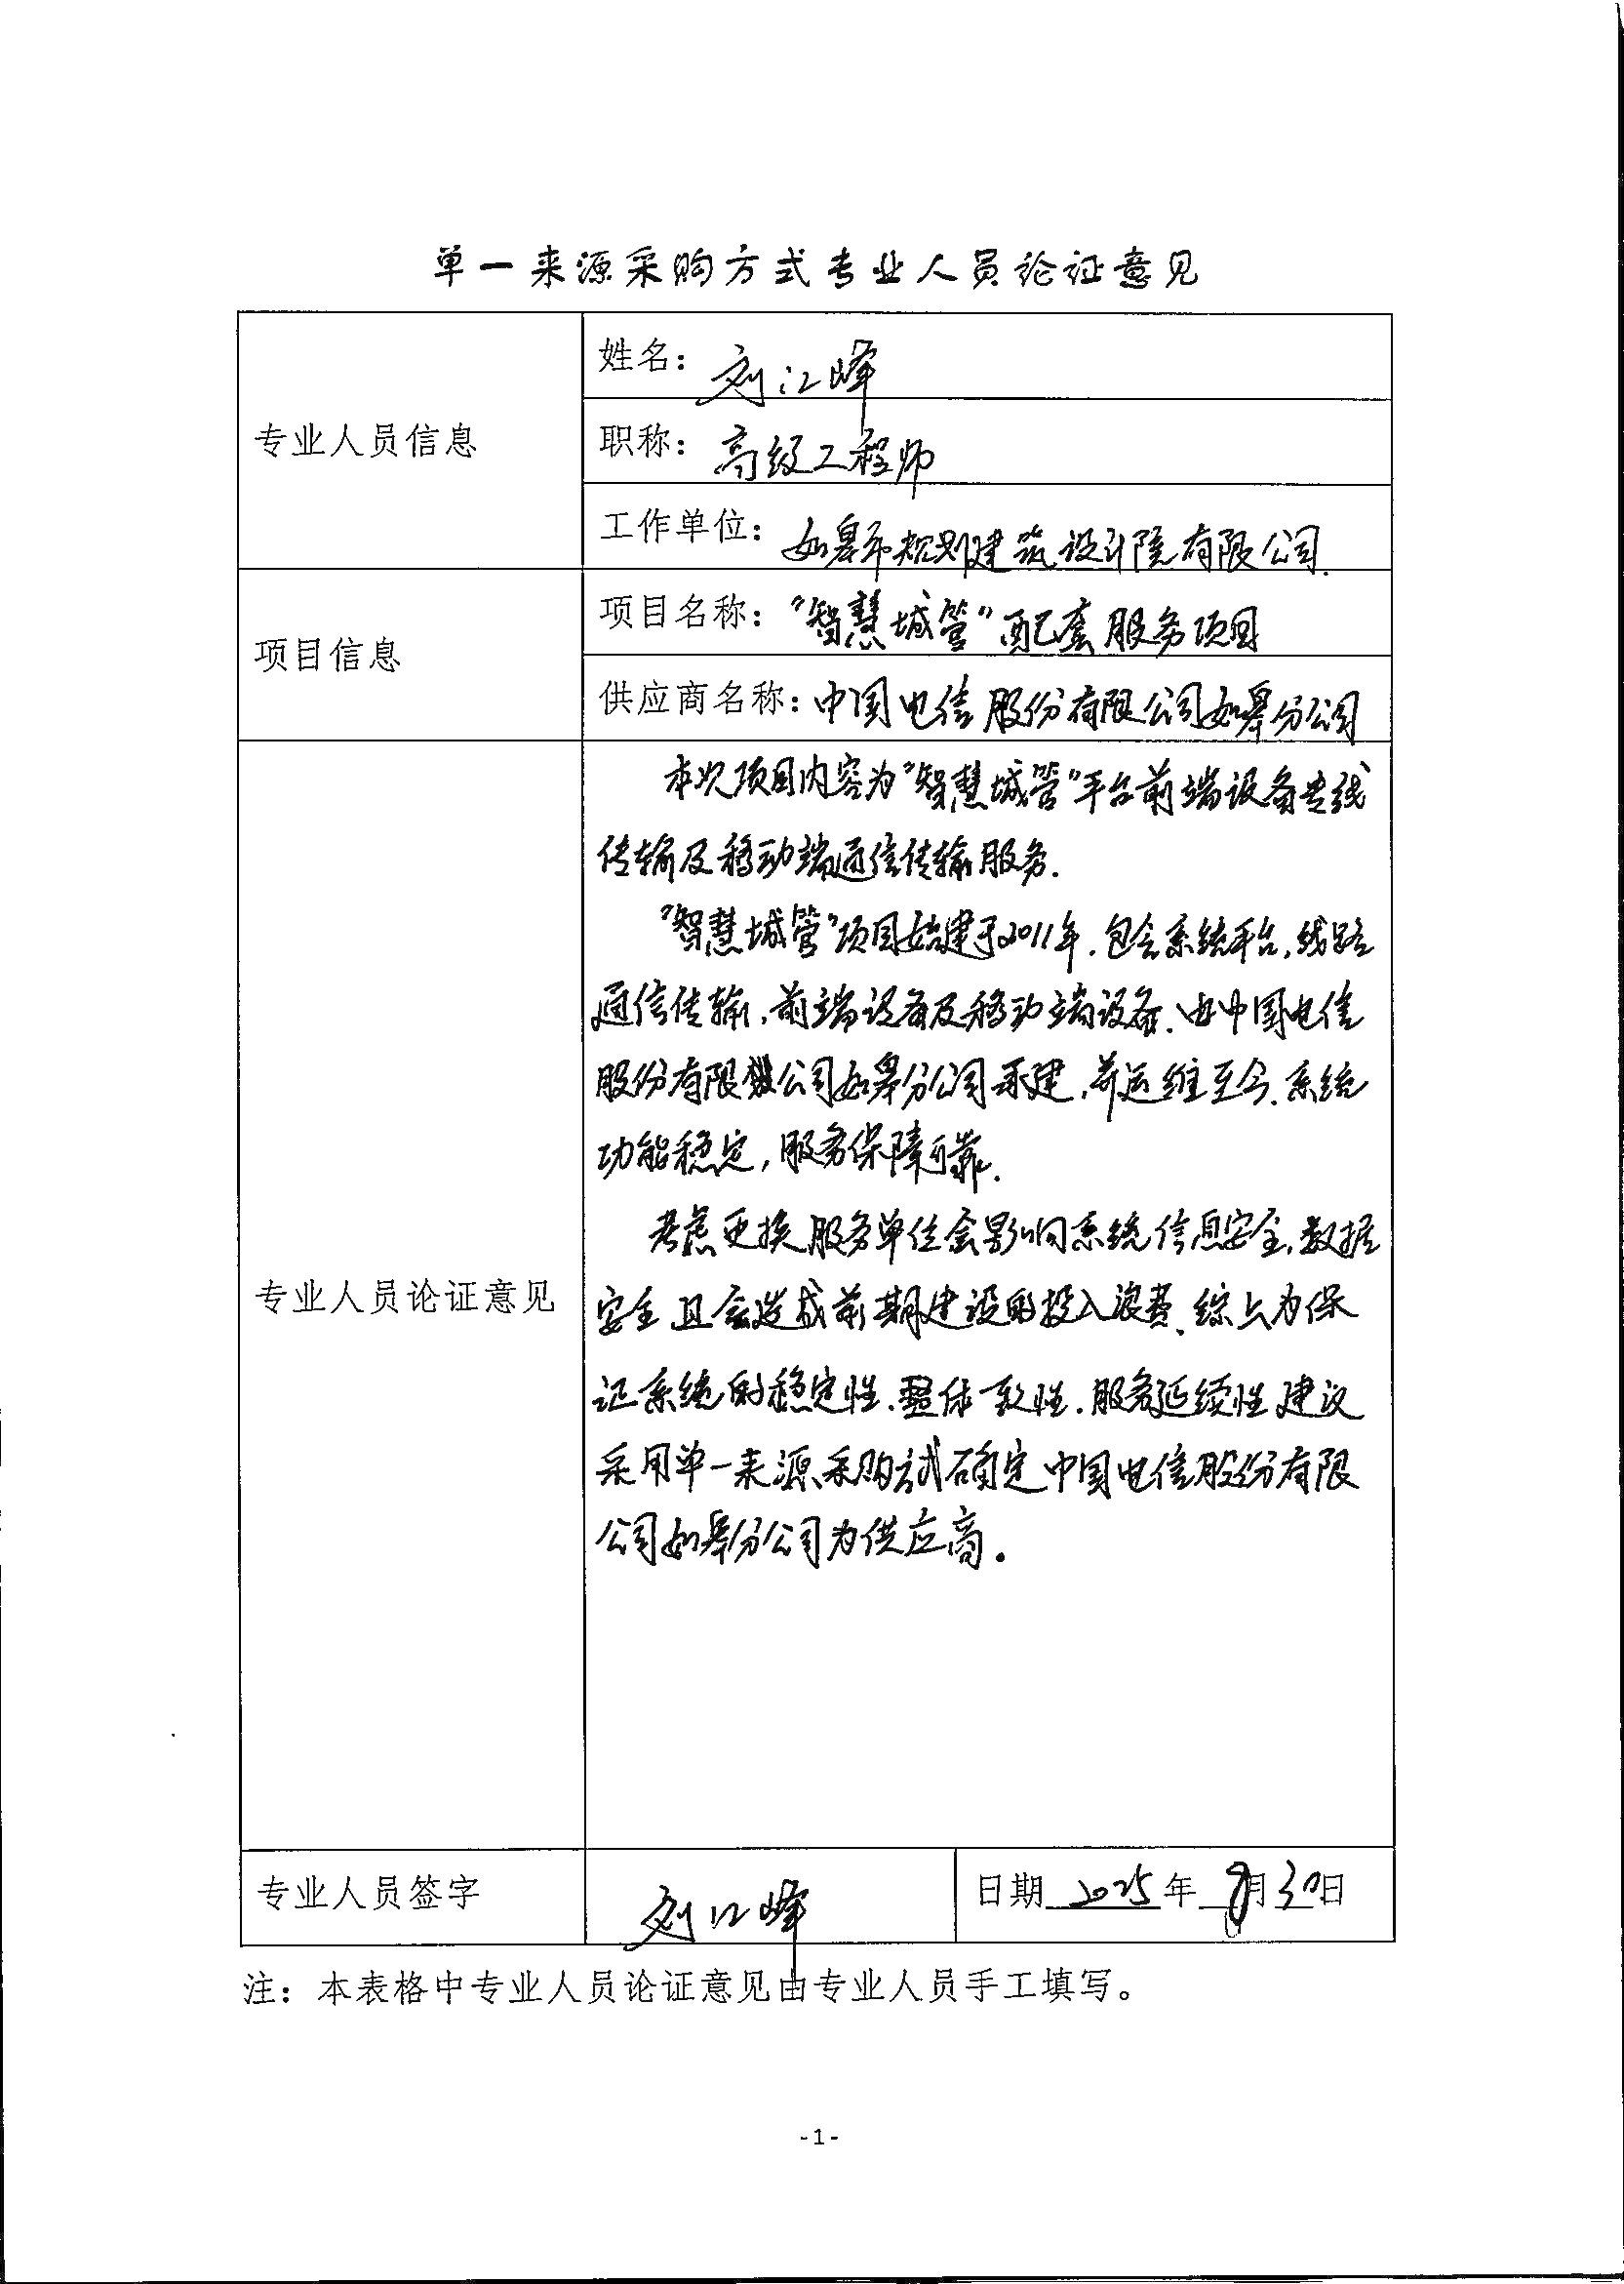 单一来源采购方式专业人员论证意见
专业人员信息
姓名：刘江峰
职称：高级工程师
工作单位：如皋市规划建筑设计院有限公司.
项目信息
项目名称："智慧城管"配套服务项目
供应商名称：中国电信股份有限公司如皋分公司
专业人员论证意见
本次项目内容为"智慧城管"平台前端设备专线
传输及移动端通信传输服务.
"智慧城管"项目始建于2011年.包含系统平台,线路
通信传输,前端设备及移动端设备.由中国电信
股份有限公司如皋分公司承建,并运维至今.系统
功能稳定,服务保障可靠.
考虑更换服务单位会影响系统信息安全,数据
安全且会造成前期建设的投入浪费.综上为保
证系统的稳定性.整体一致性.服务延续性建议
采用单一来源采购方式确定中国电信股份有限
公司如皋分公司为供应商。
专业人员签字
刘江峰
日期2025年8月30日
注：本表格中专业人员论证意见由专业人员手工填写。
-1-